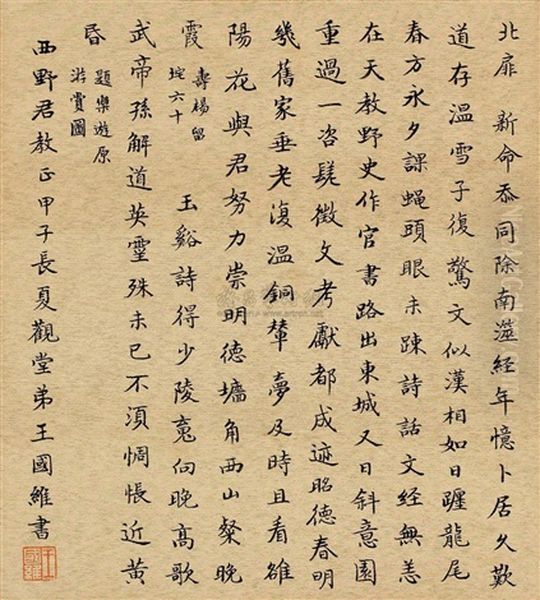 北扉新命忝同除南澨經年憶卜居久歎
道存溫雪子復驚文似漢相如日躔龍尾
春方永夕課蠅頭眼未疎詩話文經無恙
在天教野史作官書路出東城又日斜意園
重過一咨嗟徵文考獻都成迹昭德春明
幾舊家垂老復溫銅輦夢及時且看雒
陽花與君努力崇明德墻角西山粲晚
霞
壽楊留
垞六十
玉谿詩得少陵䰟向晚高歌
武帝孫解道英靈殊未已不須惆悵近黃
昏
題樂遊原
游賞圖
西野君教正甲子長夏觀堂弟王國維書
王國維